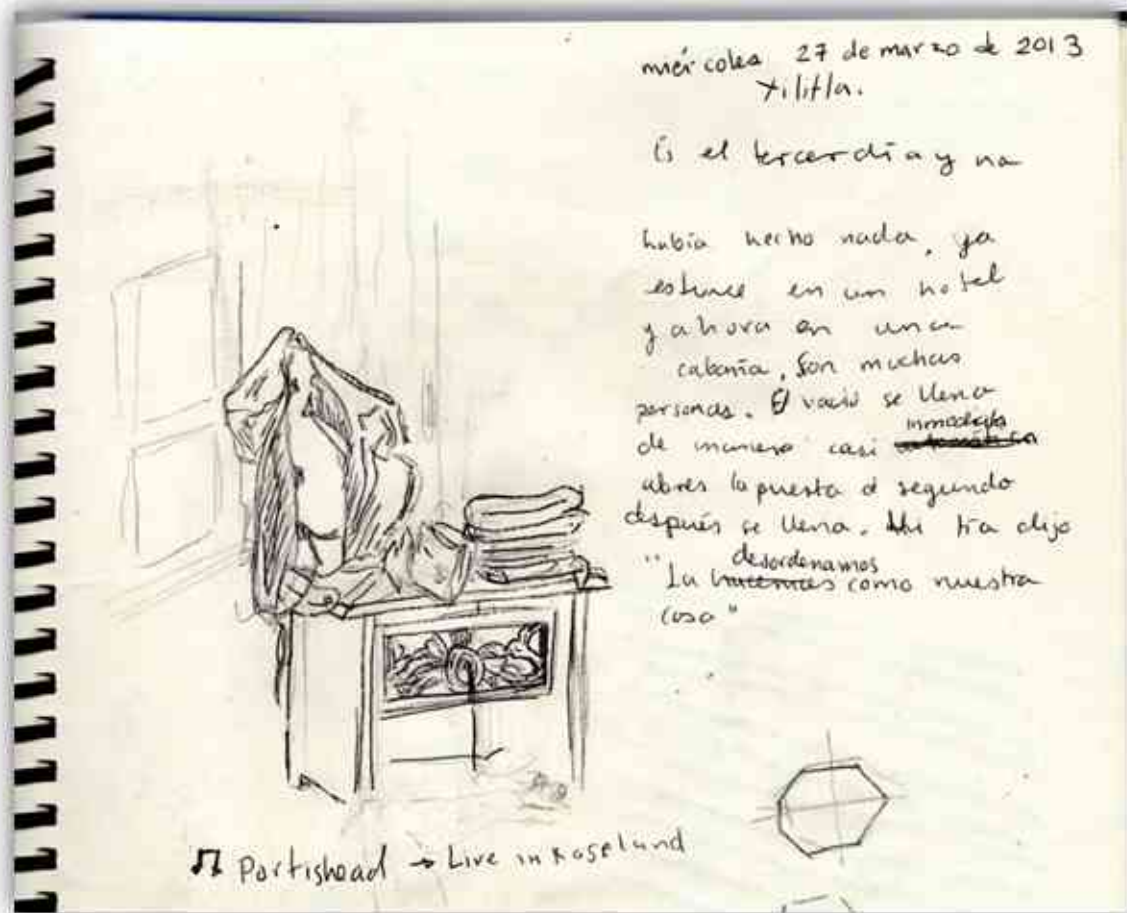 miércoles 27 de marzo de 2013
Xilitla.
Es el tercer día y no
había hecho nada, ya
estuve en un hotel
y ahora en una
cabaña, son muchas
personas. El vacío se llena
inmediata
de manera casi
abres la puerta d segundo
después se llena. Mi tía dijo
desordenamos
"La hacemos como nuestra
casa"
♫ Portishead → Live in Roseland